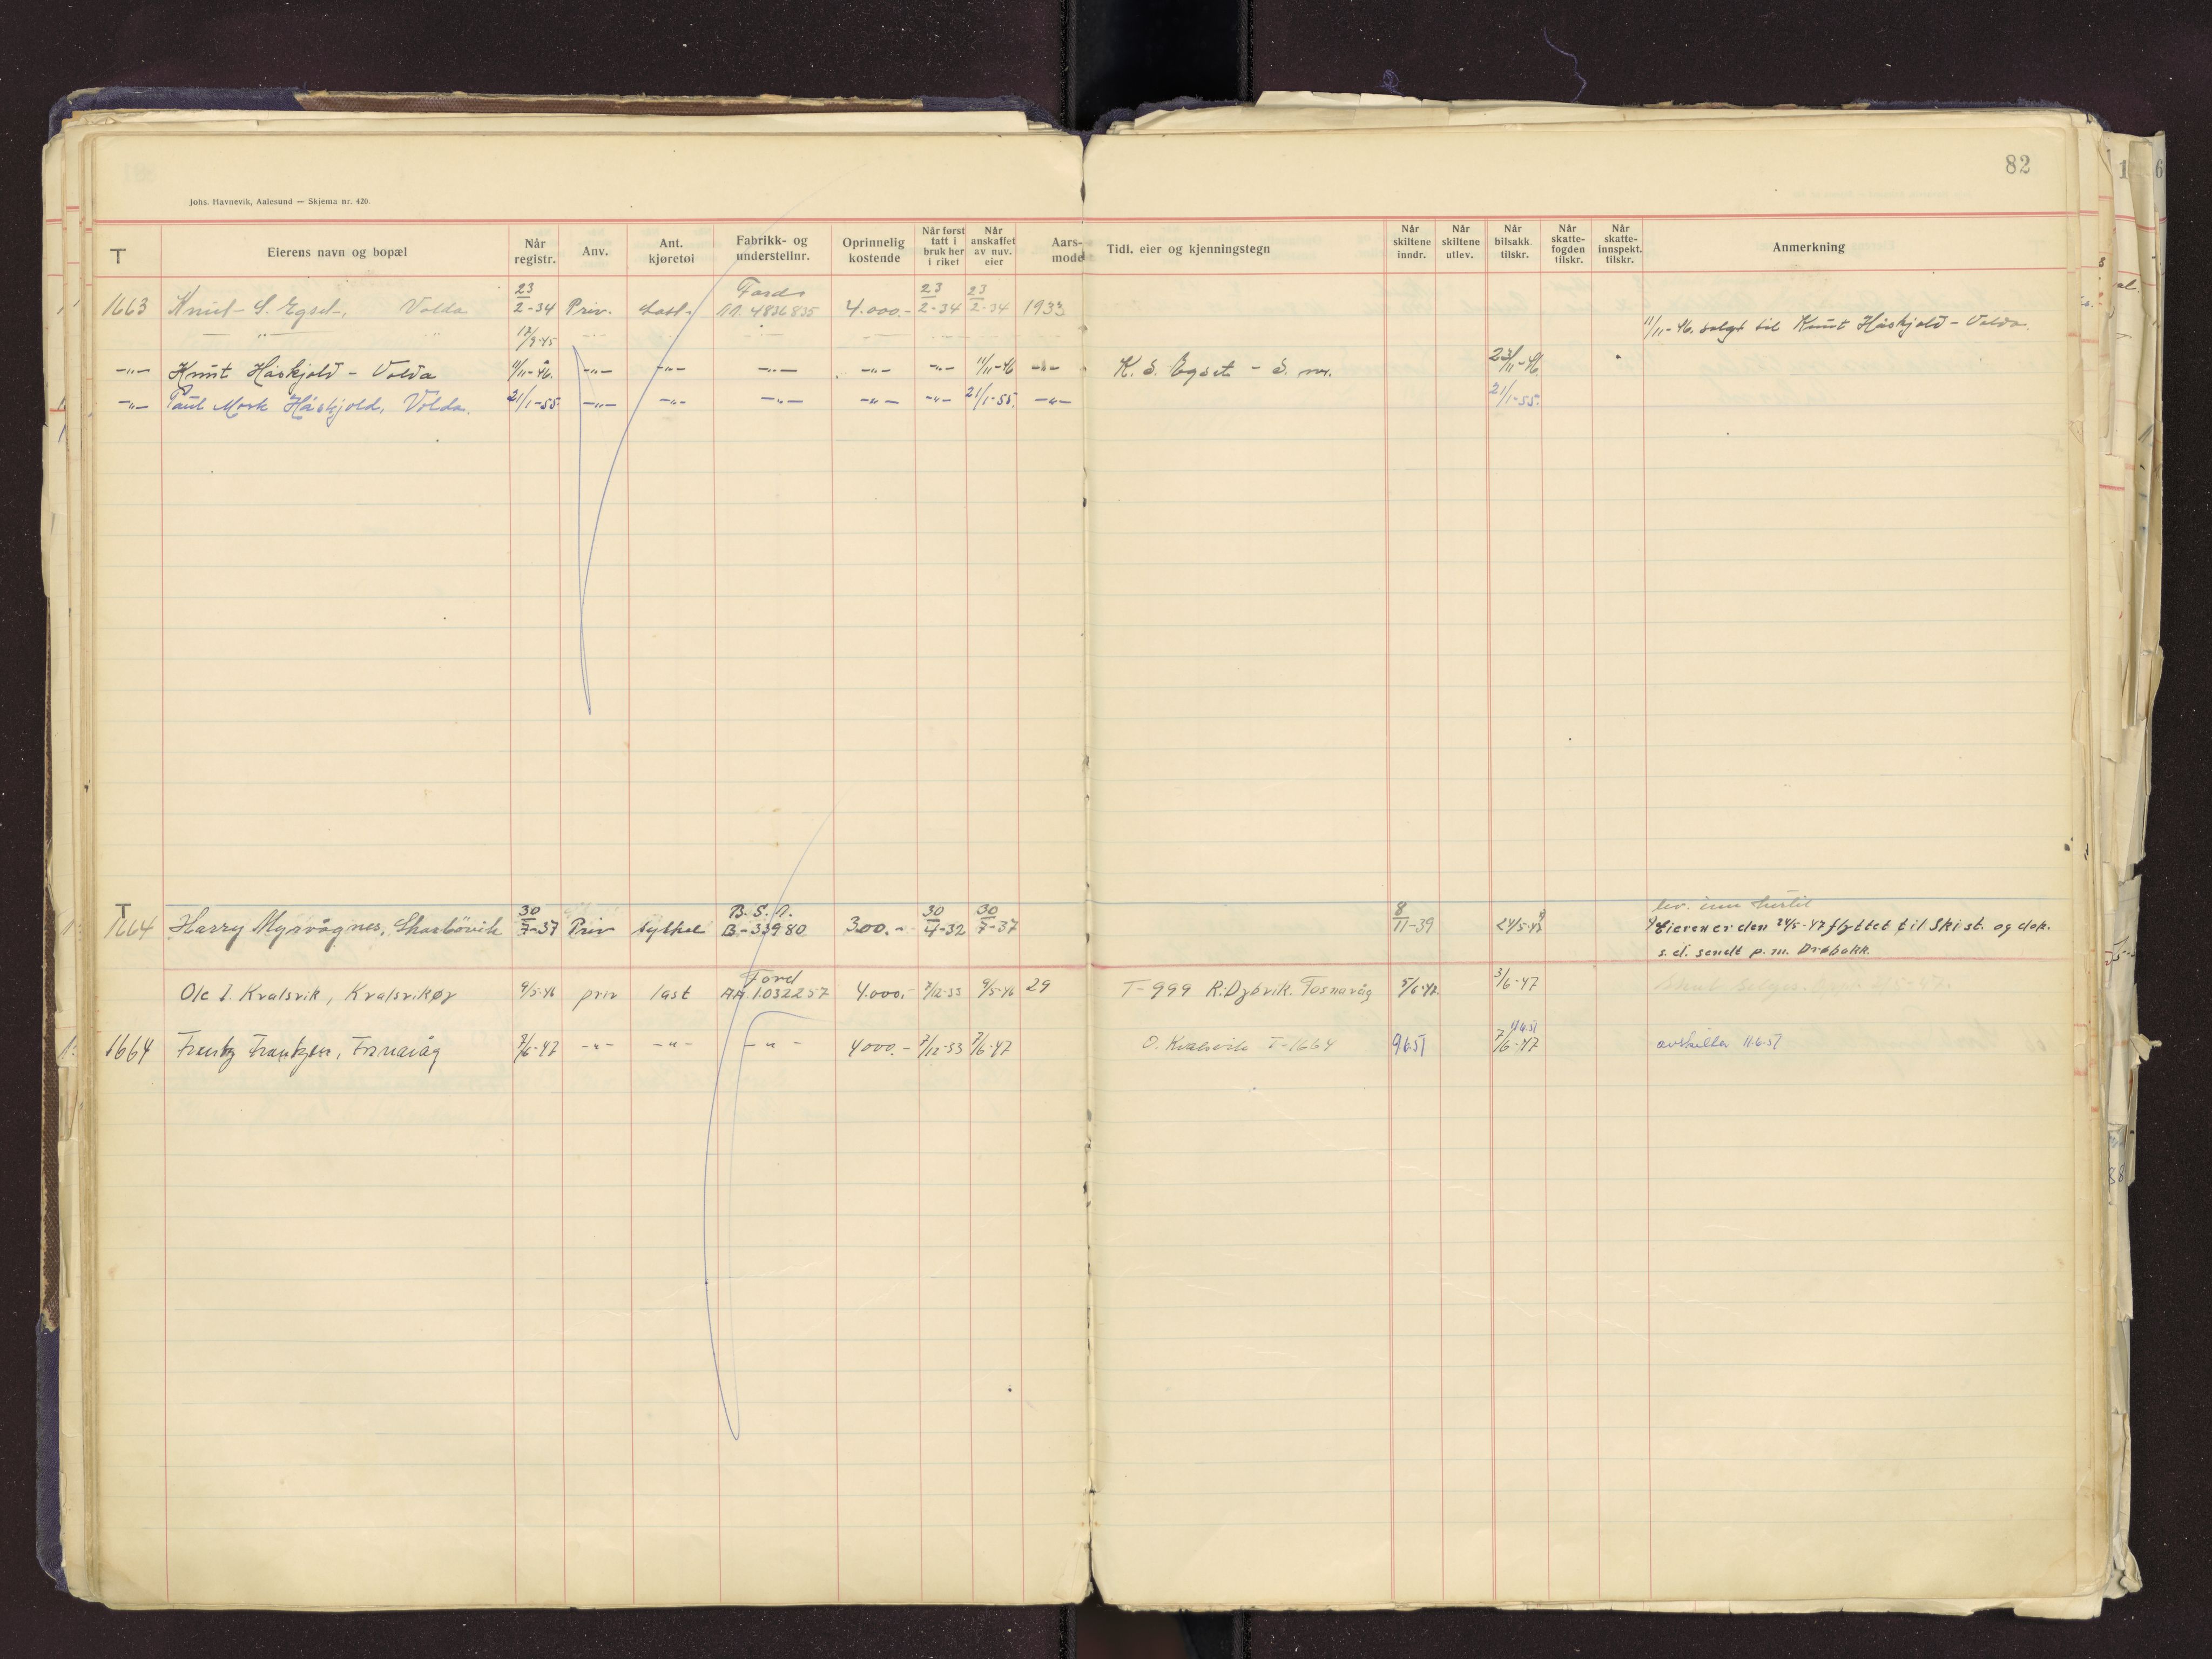 82
Johs. Havnevik, Aalesund — Skjema nr. 420.
T Eierens navn og bopæl Når registr. Anv. Ant. kjøretøi Fabrikk- og understellnr. Oprinnelig kostende Når først tatt i bruk her i riket Når anskaffet av nuv. eier Aars- model Tidl. eier og kjenningstegn Når skiltene inndr. Når skiltene utlev. Når bilsakk. tilskr. Når skatte- fogden tilskr. Når skatte- innspekt. tilskr. Anmerkning
1663 Knut S. Egset, Volda 23/2-34 Priv. Last Ford 4836835 4.000.- 23/2-34 23/2-34 1933
— " — 12/9-45
11/11-46. solgt til Knut Håskjold - Volda.
-"- Knut Håskjold - Volda 11/11-46. -"- -"- -"- -"- -"- 11/11-46 -"- K. S. Egset - S. nr. 23/11-46
-"- Paul Mork Håskjold, Volda. 21/1-55 -"- -"- -"- -"- -"- 21/1-55. -"- 21/1-55.
lev. inn hertil
T 1664 Harry Myrvågnes, 30/7-37 Priv sykkel B.S.A. B-33980 300.- 30/4-32 30/7-37 8/11-39 24/5-47 Eieren er den 24/5-47 flyttet til Ski st. og dok.
s.d. sendt p.m. Drøbakk.
Ole J. Kvalsvik, Kvalsvikør 9/5-46 priv last Ford AA 1032257 4.000.- 7/12-33 9/5-46 29 T-999 R. Djbvik. Fosnavåg 5/6-47. 3/6-47
1664 Frantz Frantzen, Fosnavåg 7/6-47 -"- -"- -"- 4000.- 7/12-33 7/6-47 O. Kvalsvik T-1664 9651 11.6.51 7/6-47 avskiltet 11.6.51